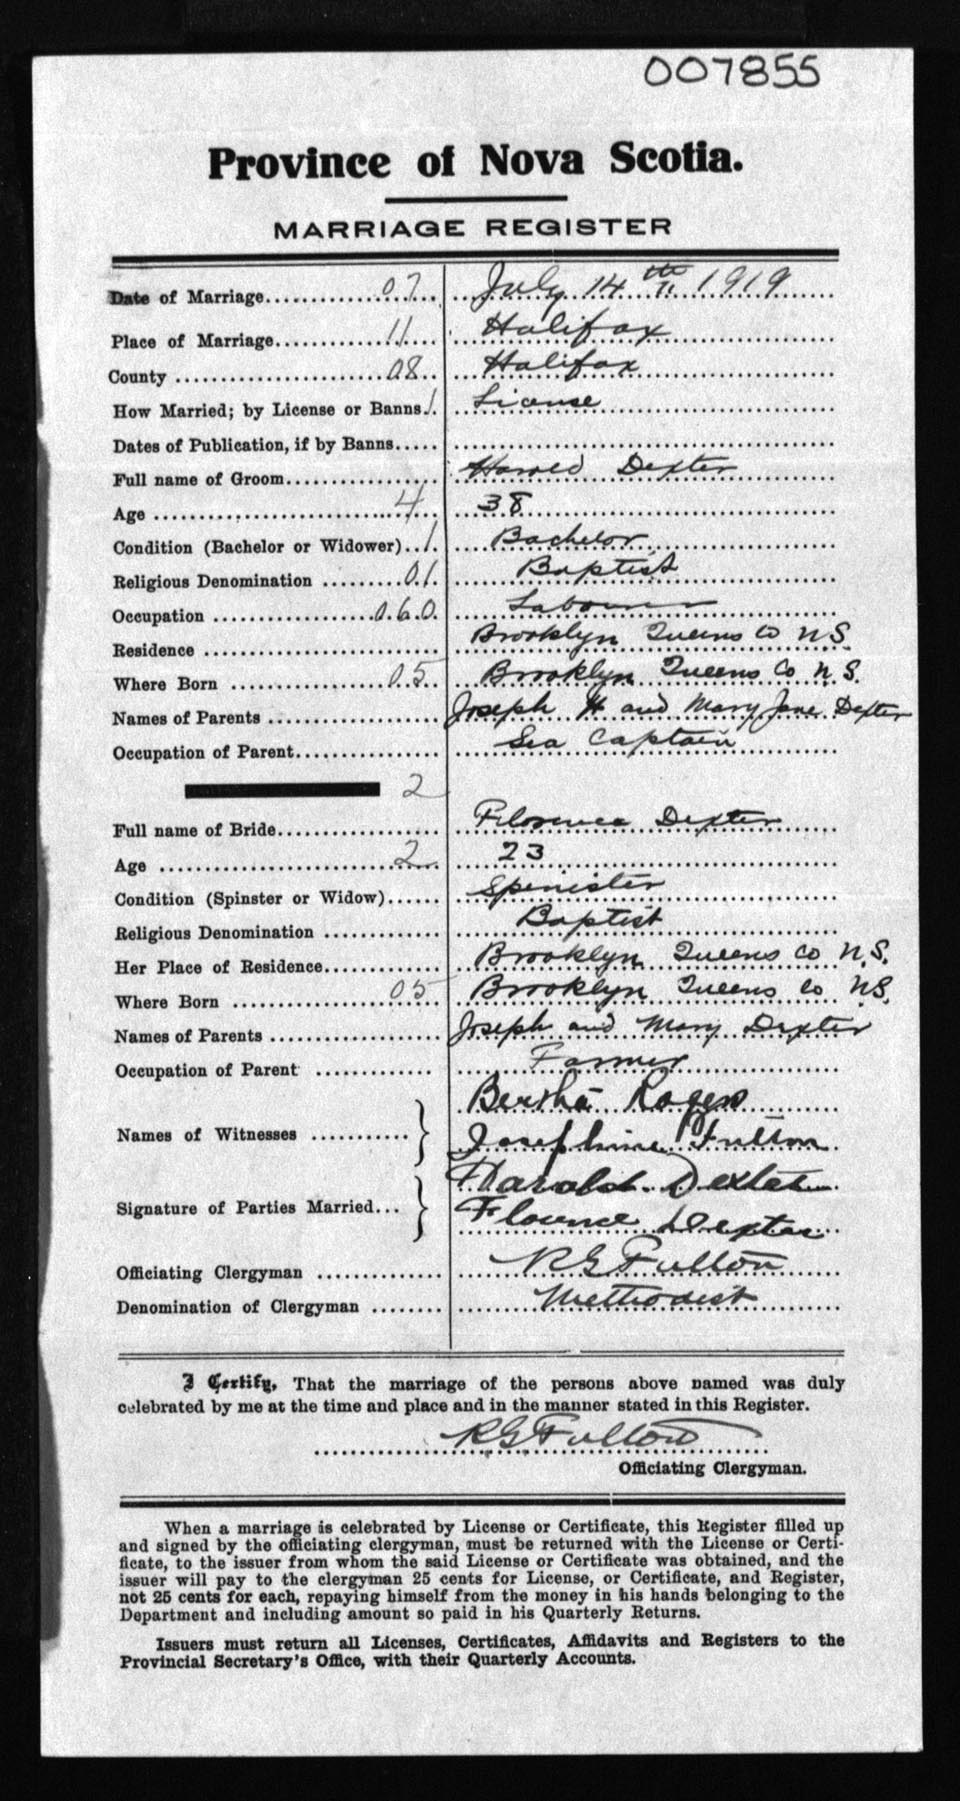 007855
Province of Nova Scotia.
MARRIAGE REGISTER
Date of Marriage 07 July 14th 1919
Place of Marriage 11 Halifax
County 08 Halifax
How Married; by License or Banns 1 License
Dates of Publication, if by Banns
Full name of Groom Harold Dexter
Age 4 38
Condition (Bachelor or Widower) 1 Bachelor
Religious Denomination 01 Baptist
Occupation 060 Labourer
Residence Brooklyn Queens Co N.S.
Where Born 05 Brooklyn Queens Co N.S.
Names of Parents Joseph H and Mary Jane Dexter
Occupation of Parent Sea Captain
2
Full name of Bride Florence Dexter
Age 2 23
Condition (Spinster or Widow) Spenister
Religious Denomination Baptist
Her Place of Residence Brooklyn Queens Co N.S.
Where Born 05 Brooklyn Queens Co N.S.
Names of Parents Joseph and Mary Dexter
Occupation of Parent Farmer
Bertha Rogers
Names of Witnesses
Josephine Fulton
Harold Dexter
Signature of Parties Married
Florence Dexter
Officiating Clergyman R G Fulton
Denomination of Clergyman Methodist
I Certify, That the marriage of the persons above named was duly
celebrated by me at the time and place and in the manner stated in this Register.
R G Fulton
Officiating Clergyman.
When a marriage is celebrated by License or Certificate, this Register filled up
and signed by the officiating clergyman, must be returned with the License or Certi-
ficate, to the issuer from whom the said License or Certificate was obtained, and the
issuer will pay to the clergyman 25 cents for License, or Certificate, and Register,
not 25 cents for each, repaying himself from the money in his hands belonging to the
Department and including amount so paid in his Quarterly Returns.
Issuers must return all Licenses, Certificates, Affidavits and Registers to the
Provincial Secretary's Office, with their Quarterly Accounts.